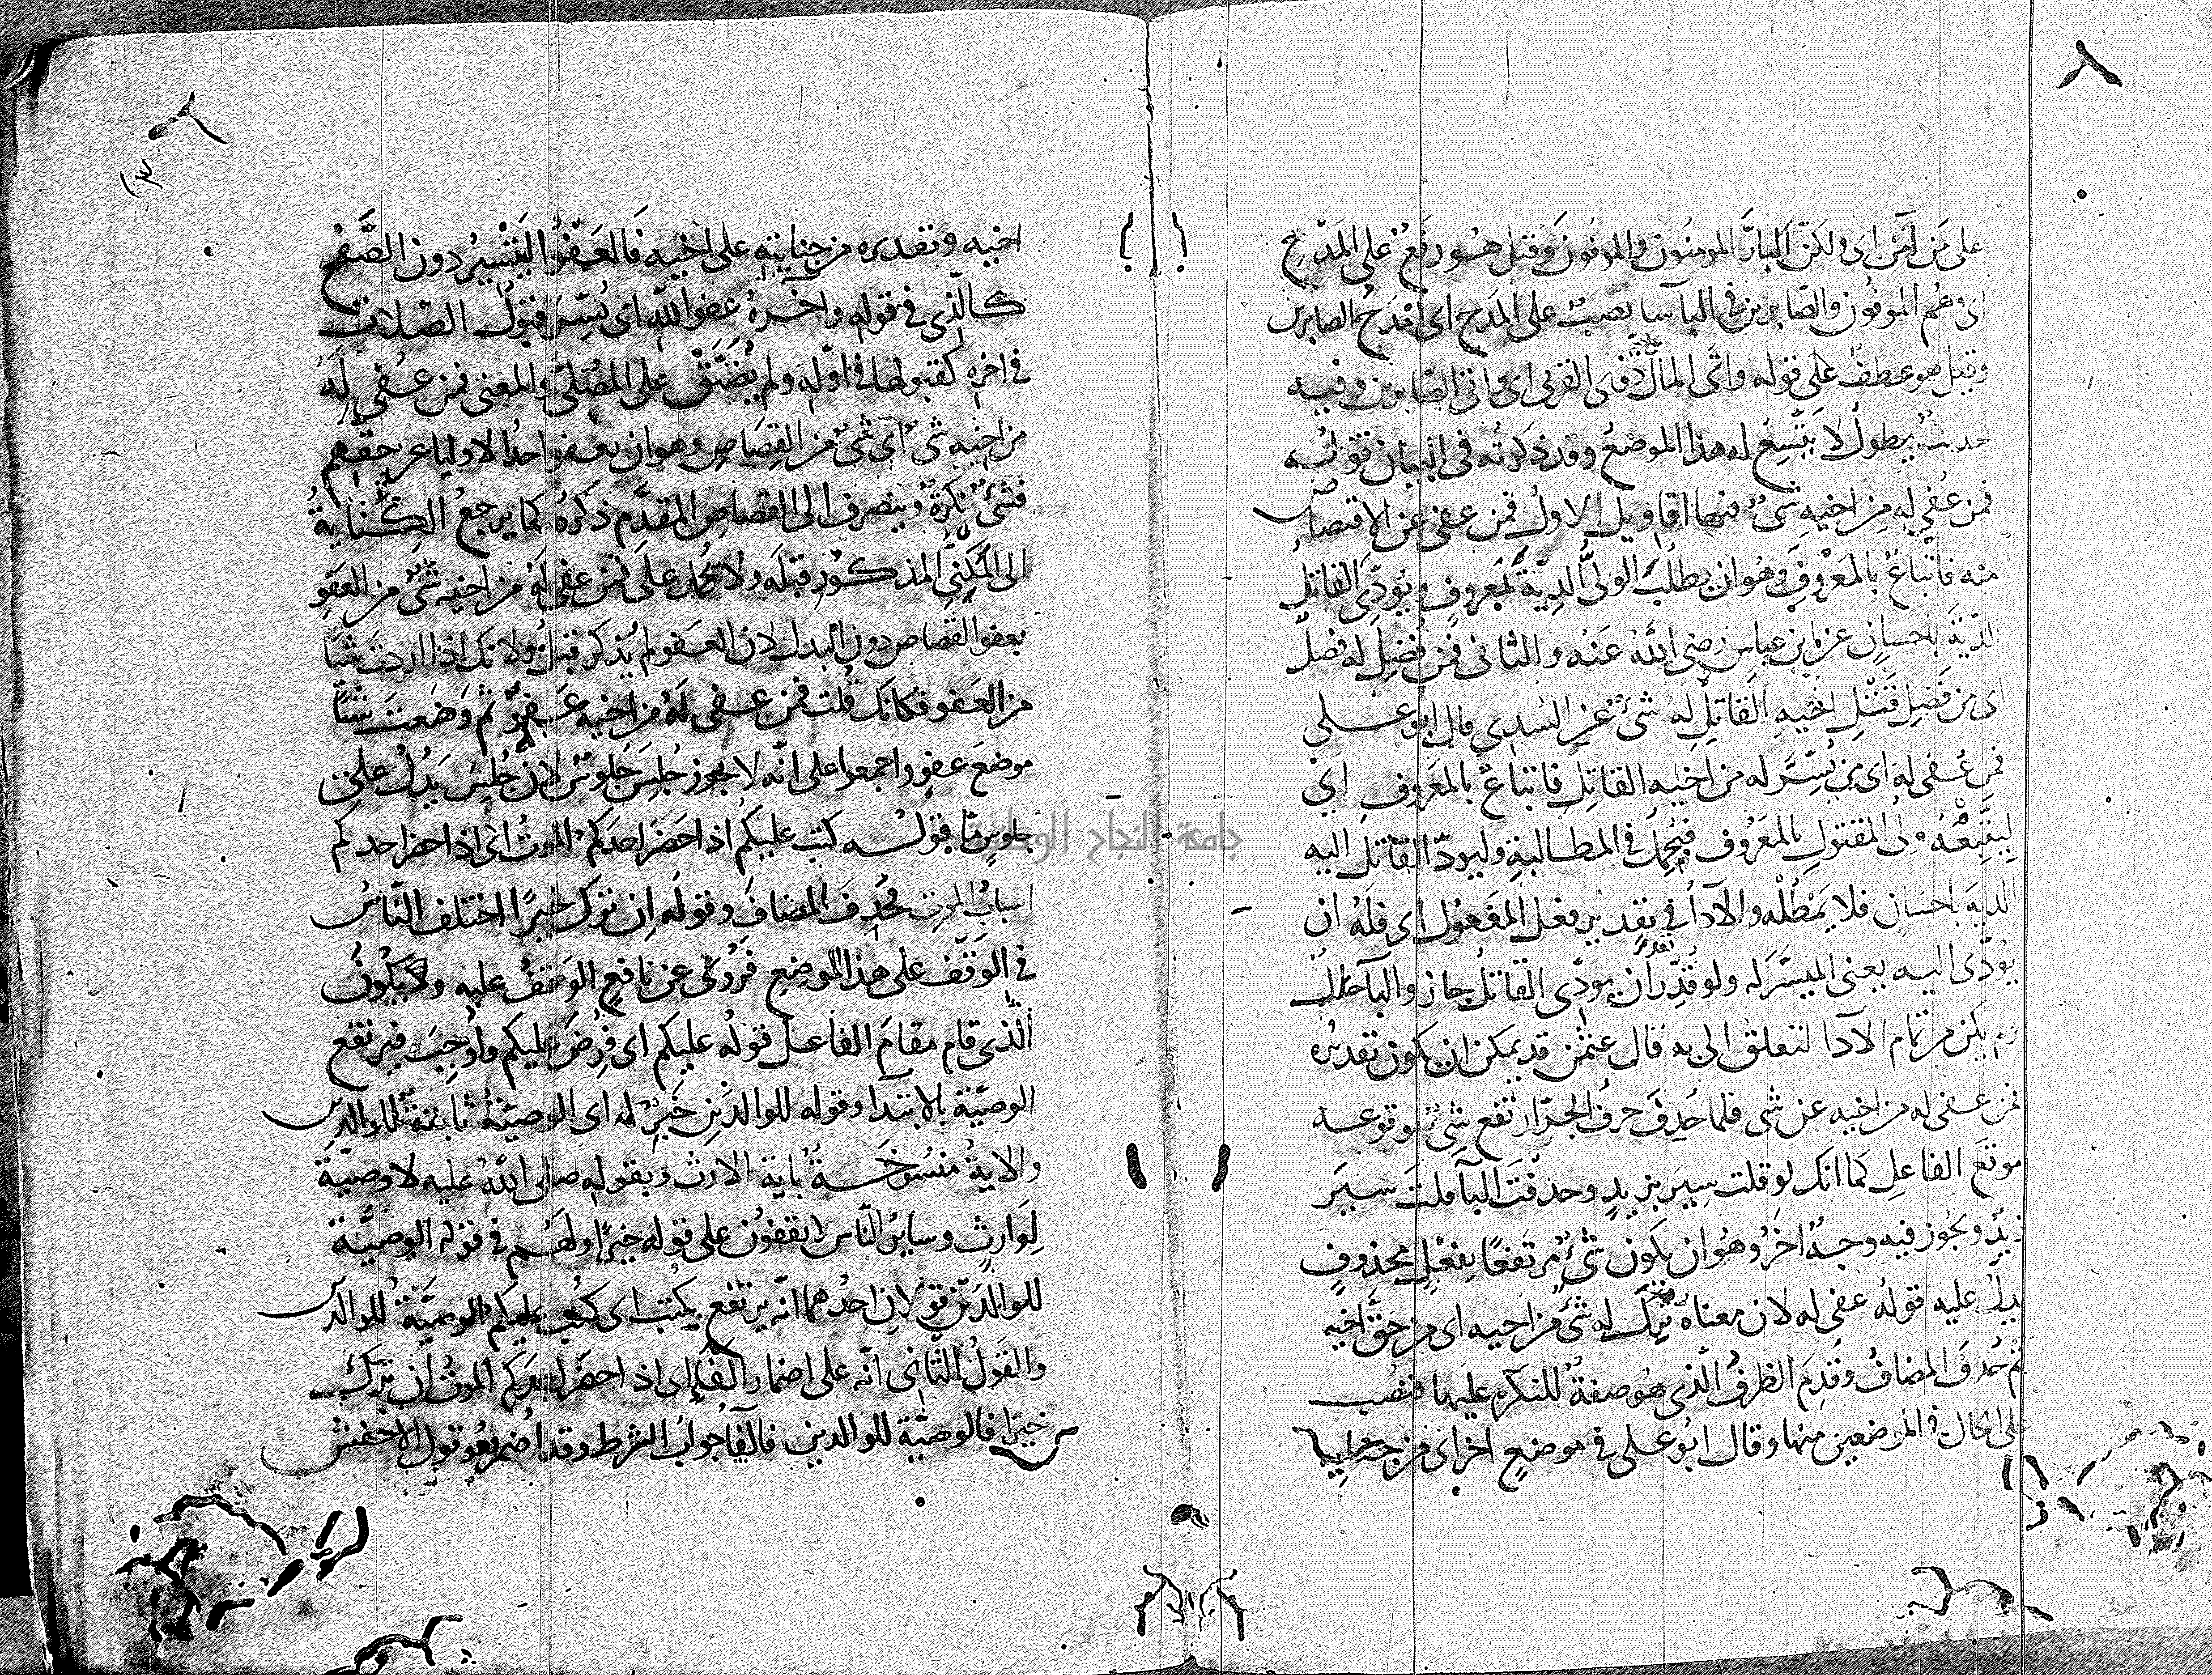 على مَن آمَن اى ولكنّ البارَّ المومنُون والموفُونَ وقيل هُو رفعٌ على المَدْحِ
اى وهُم الموفُون والصّابرين فى الباسا نصبٌ على المدح اى امْدَحُ الصابرين
وقيل هو عطفٌ على قوله واتى المالَ ذوى القربى اى واتى الصّابرين وفيه
حديثٌ يطولُ لا يتّسِعُ له هذا الموضعُ وقد ذكرتُه فى البيان قولُه
فمن عُفى له مِن اخيهِ شىٌ فيها اقاويل الاولُ فمن عفى عن الاقتصاص
منه فاتباعٌ بالمَعْروفِ وهُو ان يطلُبَ الولىُّ الدِيّةَ بمَعروفٍ ويُودّىَ القاتلُ
الدّيَةَ باحسانٍ عن ابن عباسٍ رضى اللّهُ عَنْه والثانى فمن فُضِلَ له فضلٌ
اى من فَضْلِ قَتْلِ اخيهِ القاتلِ له شىٌ عن السّدى قال ابو على
فمن عُفى له اى من يُسّرَ له من اخيه القاتِل فاتباعٌ بالمَعروفِ اى
لِيَتّبِعْهُ ولى المقتولِ بالمعَرُوف فيُجمِلُ فى المطالبةِ وليودّ القاتل اليه
الديةَ باحسَانٍ فلا يَمْطُلْه والآداُ فى تقدير فعل المفعُول اى فلَهُ ان
يُودّى اليه يعنى الميسّرَ له ولو قُدّر تقديرَ ان يودّى القاتلُ جاز والبا حالٌ
ولم يكن من تمام الآدا لتعلق الى به قال عثمٰن قد يمكن ان يكون تقديرُه
فمن عفى له من اخيه عن شى فلما حُذِفَ حرفُ الجرّ ارتفع شىٌ لوقوعه
موقعَ الفاعلِ كما انك لو قلت سِيرَ بزيدٍ وحذفتَ البآ قلتَ سيرَ
زيدٌ ويجُوز فيه وجهٌ اخرُ وهُو ان يكون شىٌ مُرتَفعًا بفعْلٍ محذوفٍ
يدلُّ عليه قولُه عفى له لان معناه تُرِكَ له شىٌ من اخيه اى من حقِّ اخيه
ثم حُذفَ المضافُ وقُدِمَ الظرفُ الّذى هُو صفةٌ للنكرة عليها فنُصِبَ
على الحال فى الموضعين منها وقال ابُو على فى موضعٍ اخر اى من جنايةِ
اخيه وتقديره من جنايتِهِ على اخيهِ فالعَفْوُ التَّيْسيرُ دون الصَّفحِ
كالّذى فى قوله واخرهُ عَفوُ اللّه اى يُسّرَ قبُولُ الصّلاة
فى اخره كقبُولها فى اوّله ولم يُضَيَّقْ على المُصَلّى والمعنى فمن عُفى له
من اخيه شىٌ اى شىٌ من القِصَاصِ وهو ان يعفو احدُ الاوليا عن حقّهِ
فشىٌ نكِرةٌ وينصرف الى القصاص المقدَّم ذكرهُ كما يرجعُ الكنايةُ
الى المَكنِّى المذكُور قبلَه ولا يُحمل على فمن عفى لهُ من اخيه شىٌ من العَفوِ
بعفو القصاص دون البدل لان العَفو لم يُذكر قبلُ ولانّك اذا اردتَ شيًا
من العَفو فكانّك قُلت فمن عفى لهُ من اخيه عَفوٌ ثم وَضَعتَ شيًا
موضعَ عَفوٍ واجمعوا على انّه لا يجوز جُلِسَ جُلوسٌ لان جُلِسَ يَدُلُّ على
جلوسٍ مّا قولُه كتب عليكم اذا حَضَر احدَكم الموتُ اى اذا حضر احدكم
اسبابُ الموت فحُذِفَ المضافُ وقولَه اِن ترَك خيرًا اختلف النّاسُ
فى الوَقْف على هذا الموضعِ فرُوى عن نافعٍ الوقفُ عليهِ ولا يكُونُ
الّذى قام مقامَ الفاعل قولُه عليكم اى فُرِضَ عليكم واُوجِبَ فيرتفع
الوصيّة بالابتدا وقوله للوالدَين خبرٌ له اى الوصيّةُ ثابتةٌ للوالدين
والايةُ منسُوخةٌ باية الارث وبقوله صلى اللّهُ عليه لا وصيّةَ
لِوَارِثٍ وسايرُ النّاس لا يقفُون على قوله خيرًا ولهُم فى قوله الوصيّة
للوالدَين قولان احدُهما انّه يرتفع بكُتِبَ اى كُتِبَ عليكم الوصيّةُ للوالدين
والقولُ الثّانى انّه على اضمار الفآ اى اذا حضَر احدَكم الموتُ ان ترك
خيرًا فالوصيّة للوالدين فالفآ جوابُ الشرط وقد اُضمر وهُو قول الاخفش
جامعة النجاح الوطنية